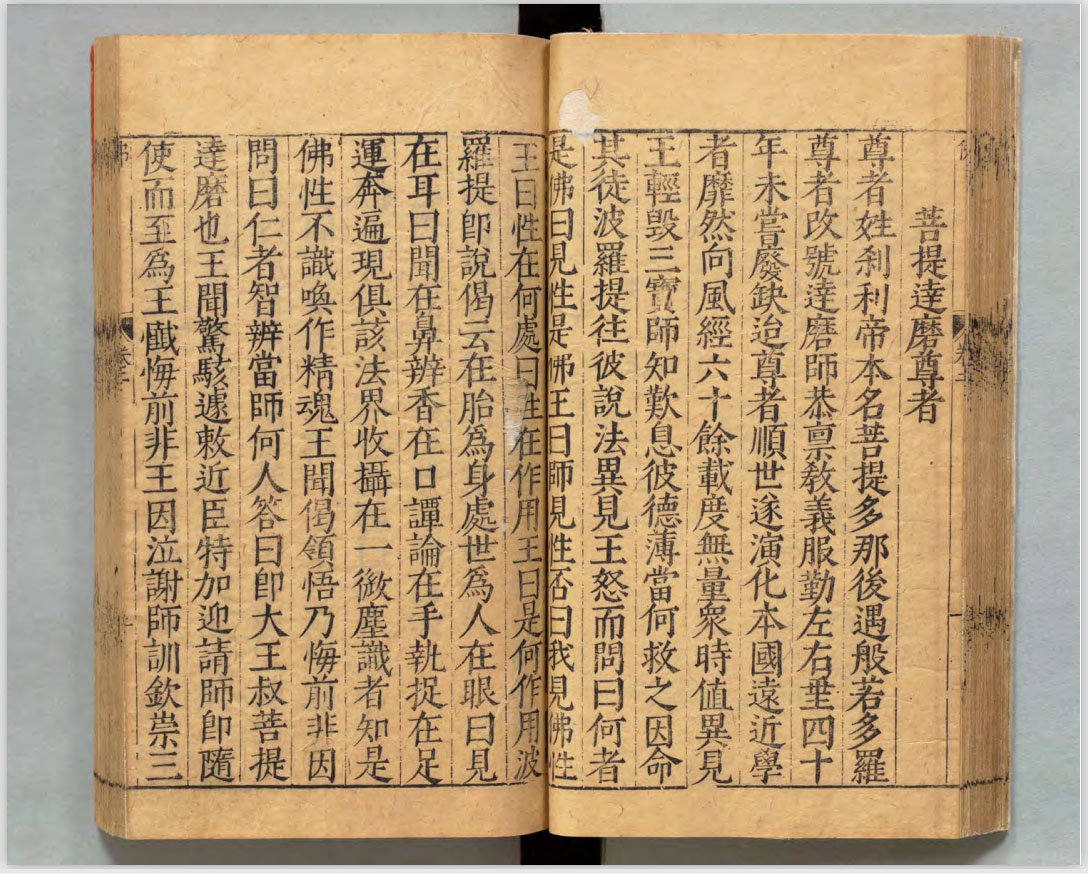 菩提達磨尊者
尊者姓刹利帝本名菩提多那後遇般若多羅
尊者改號達磨師恭禀敎義服勤左右垂四十
年未嘗廢缺迨尊者順世遂演化本國遠近學
者靡然向風經六十餘載度無量衆時值異見
王輕毀三寶師知歎息彼德薄當何救之因命
其徒波羅提往彼說法異見王怒而問曰何者
是佛曰見性是佛王曰師見性否曰我見佛性
王曰性在何處曰性在作用王曰是何作用波
羅提卽說偈云在胎爲身處世爲人在眼曰見
在耳曰聞在鼻辨香在口譚論在手執捉在足
運奔遍現俱該法界收攝在一微塵識者知是
佛性不識喚作精魂王聞偈領悟乃悔前非因
問曰仁者智辨當師何人答曰卽大王叔菩提
達磨也王聞驚駭遽敕近臣特加迎請師卽隨
使而至爲王懺悔前非王因泣謝師訓欽崇三